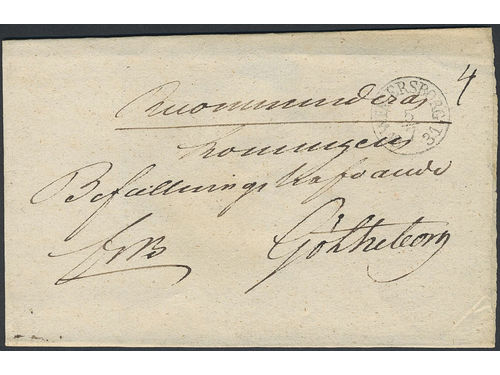 4
Recommenderas
Konungens
Befallningshafvande
Götheborg